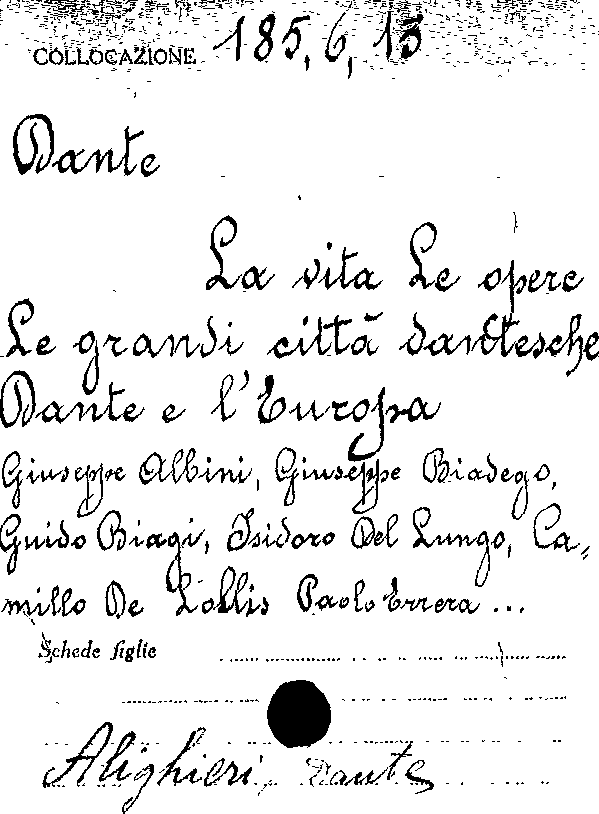 COLLOCAZIONE 185,6,13
Dante
La vita Le opere
Le grandi città dantesche
Dante e l'Europa
Giuseppe Albini, Giuseppe Biadego,
Guido Biagi, Isidoro Del Lungo, Ca,
millo De Lollis Paolo Errera ...
Schede figlie
Alighieri, Dante